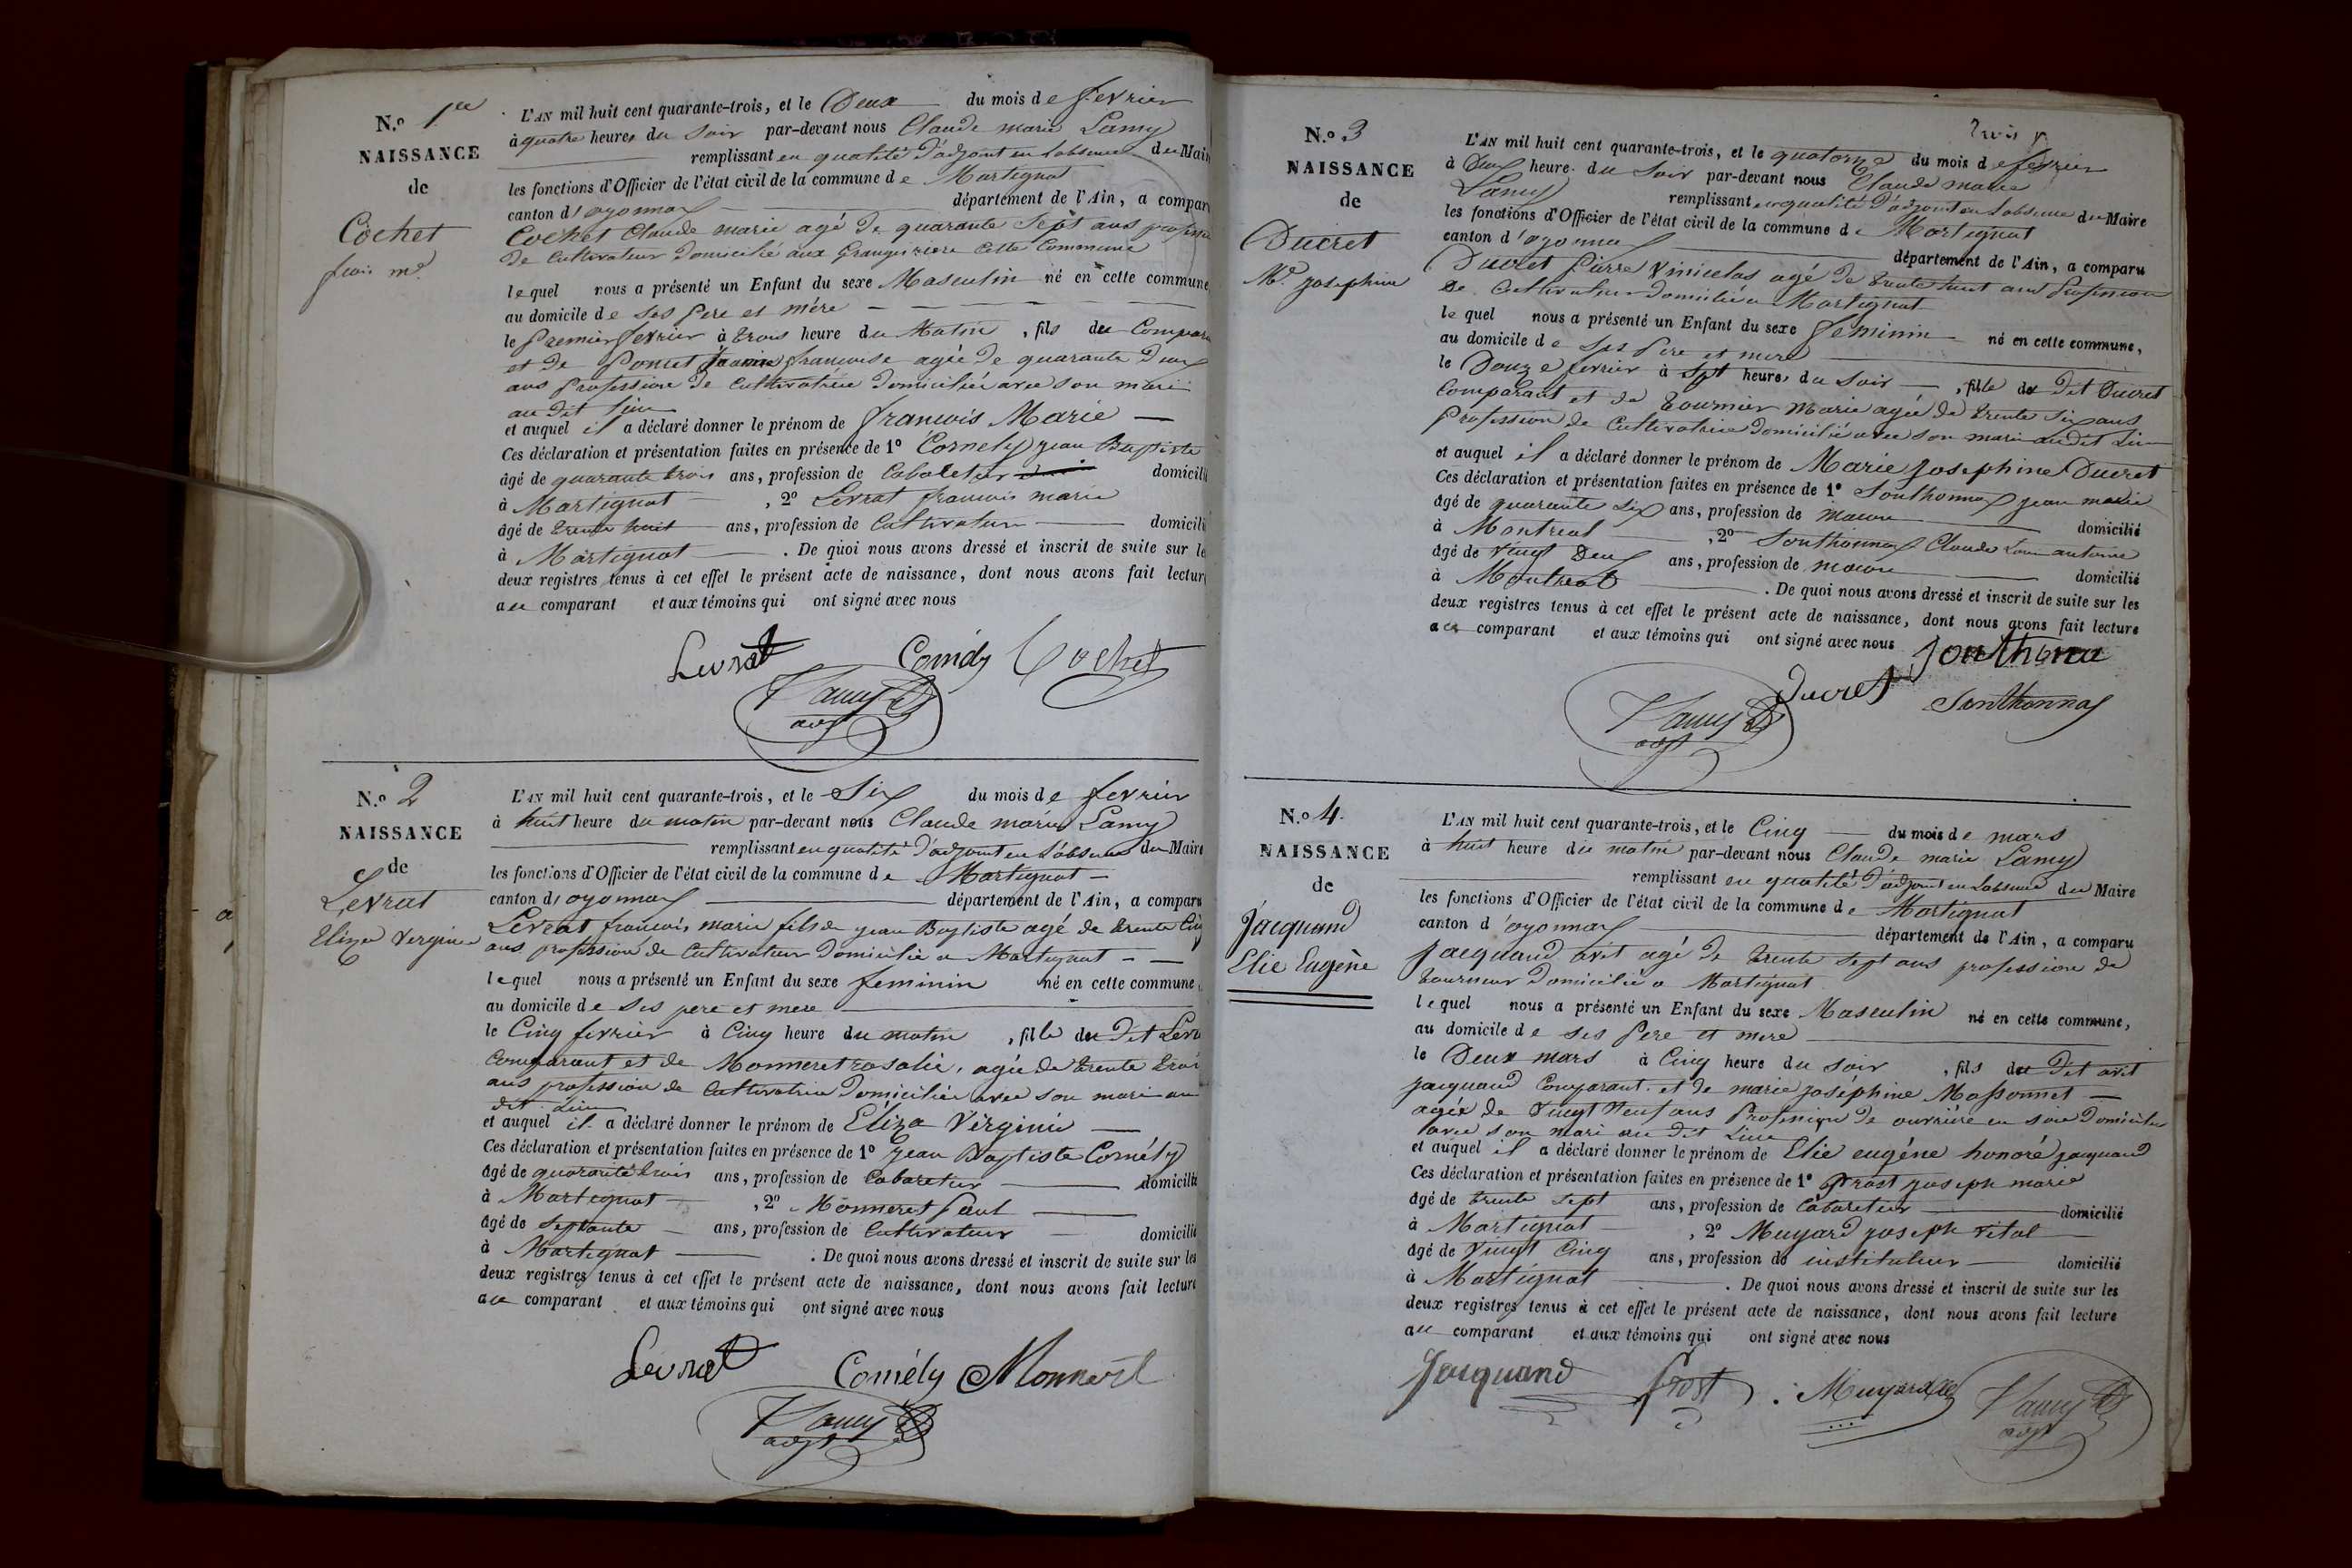 N.o 1er
NAISSANCE
de
Cochet
fcois mie
L'AN mil huit cent quarante-trois, et le Deux du mois de fevrier
à quatre heures du soir par-devant nous Claude marie Lamy
remplissant en qualité d'adjoint en l'absence du Maire
les fonctions d'Officier de l'état civil de la commune de Martignat
canton d'oyonnax département de l'Ain, a comparu
Cochet Claude marie agé de quarante sept ans profession
de cultivateur domicilié aux Granges cette Commune
lequel nous a présenté un Enfant du sexe Masculin né en cette commune,
au domicile de ses pere et mére
le Premier fevrier à trois heure du Matin, fils du Compar
et de Poncet françoise agée de quarante deux
ans profession de cultivatrice domiciliée avec son mari
au dit lieu
et auquel il a déclaré donner le prénom de francois Marie
Ces déclaration et présentation faites en présence de 1o Comely jean Baptiste
âgé de quarante trois ans, profession de Cabaletier domicilié
à Martignat, 2o Levrat francois marie
âgé de trente huit ans, profession de Cultivateur domicilié
à Martignat. De quoi nous avons dressé et inscrit de suite sur les
deux registres tenus à cet effet le présent acte de naissance, dont nous avons fait lecture
au comparant et aux témoins qui ont signé avec nous
Levrat Comély Cochet
Lamy
adjt
N.o 2
NAISSANCE
de
Levrat
Eliza Vergine
L'AN mil huit cent quarante-trois, et le Six du mois de fevrier
à huit heure du matin par-devant nous Claude marie Lamy
remplissant en qualité d'adjoint en l'absence du Maire
les fonctions d'Officier de l'état civil de la commune de Martignat
canton d'oyonnax département de l'Ain, a comparu
Levrat francois marie fils de jean Baptiste agé de trente Cinq
ans profession de Cultivateur domicilié a Martignat
lequel nous a présenté un Enfant du sexe feminin né en cette commune,
au domicile de ses pere et mere
le Cinq fevrier à Cinq heure du matin, fille du dit Levra
Comparant et de Monneret rosalie, agée de trente trois
ans profession de Cultivatrice domiciliée avec son mari au
dit lieu
et auquel il a déclaré donner le prénom de Eliza Vérginie
Ces déclaration et présentation faites en présence de 1o Jean Baptiste Comély
âgé de quarante trois ans, profession de Cabaretier domicilié
à Martignat, 2o Monneret Paul
âgé de Septante ans, profession de Cultivateur domicilié
à Martignat. De quoi nous avons dressé et inscrit de suite sur les
deux registres tenus à cet effet le présent acte de naissance, dont nous avons fait lecture
au comparant et aux témoins qui ont signé avec nous
Levrat Comély Monneret
Lamy
adjt
trois
N.o 3
NAISSANCE
de
Ducret
Mie josephine
L'AN mil huit cent quarante-trois, et le quatorze du mois de fevrier
à Deux heure du soir par-devant nous Claude marie
Lamy remplissant en qualité d'adjoint en l'absence du Maire
les fonctions d'Officier de l'état civil de la commune de Martignat
canton d'oyonnax département de l'Ain, a comparu
Ducret Pierre agé de trente huit ans Profession
de Cultivateur domicilié a Martignat
lequel nous a présenté un Enfant du sexe feminin né en cette commune,
au domicile de ses Pere et mere
le Douze fevrier à sept heures du soir, fille du dit Ducret
Comparant et de Tournier Marie agée de trente six ans
Profession de Cultivatrice domicilié avec son mari au dit lieu
et auquel il a déclaré donner le prénom de Marie Josephine Ducret
Ces déclaration et présentation faites en présence de 1o Sonthonnax jean marie
âgé de quarante six ans, profession de macon domicilié
à Montreal, 2o Sonthonnax Claude Louis antoine
âgé de vingt Deux ans, profession de macon domicilié
à Montreal. De quoi nous avons dressé et inscrit de suite sur les
deux registres tenus à cet effet le présent acte de naissance, dont nous avons fait lecture
au comparant et aux témoins qui ont signé avec nous Sonthona
Ducret Sonthonnax
Lamy
adjt
N.o 4
NAISSANCE
de
Jacquand
Elie Eugène
L'AN mil huit cent quarante-trois, et le Cinq du mois de mars
à huit heure du matin par-devant nous Claude marie Lamy
remplissant en qualité d'adjoint en l'absence du Maire
les fonctions d'Officier de l'état civil de la commune de Martignat
canton d'oyonnax département de l'Ain, a comparu
jacquand avit agé de trente sept ans profession de
tourneur domicilié a Martignat
lequel nous a présenté un Enfant du sexe Masculin né en cette commune,
au domicile de ses Pere et mere
le Deux mars à Cinq heure du soir, fils du dit avit
jacquand Comparant et de marie joséphine Massonnet
agée de vingt neuf ans Profession de ouvriére en soie domiciliée
avec son mari au dit lieu
et auquel il a déclaré donner le prénom de Elie eugéne honoré jacquand
Ces déclaration et présentation faites en présence de 1o Prost joseph marie
âgé de trente sept ans, profession de Cabaretier domicilié
à Martignat, 2o Muyard joseph vital
âgé de vingt Cinq ans, profession de instituteur domicilié
à Martignat. De quoi nous avons dressé et inscrit de suite sur les
deux registres tenus à cet effet le présent acte de naissance, dont nous avons fait lecture
au comparant et aux témoins qui ont signé avec nous
Jacquand Prost Muyard Lamy
adjt